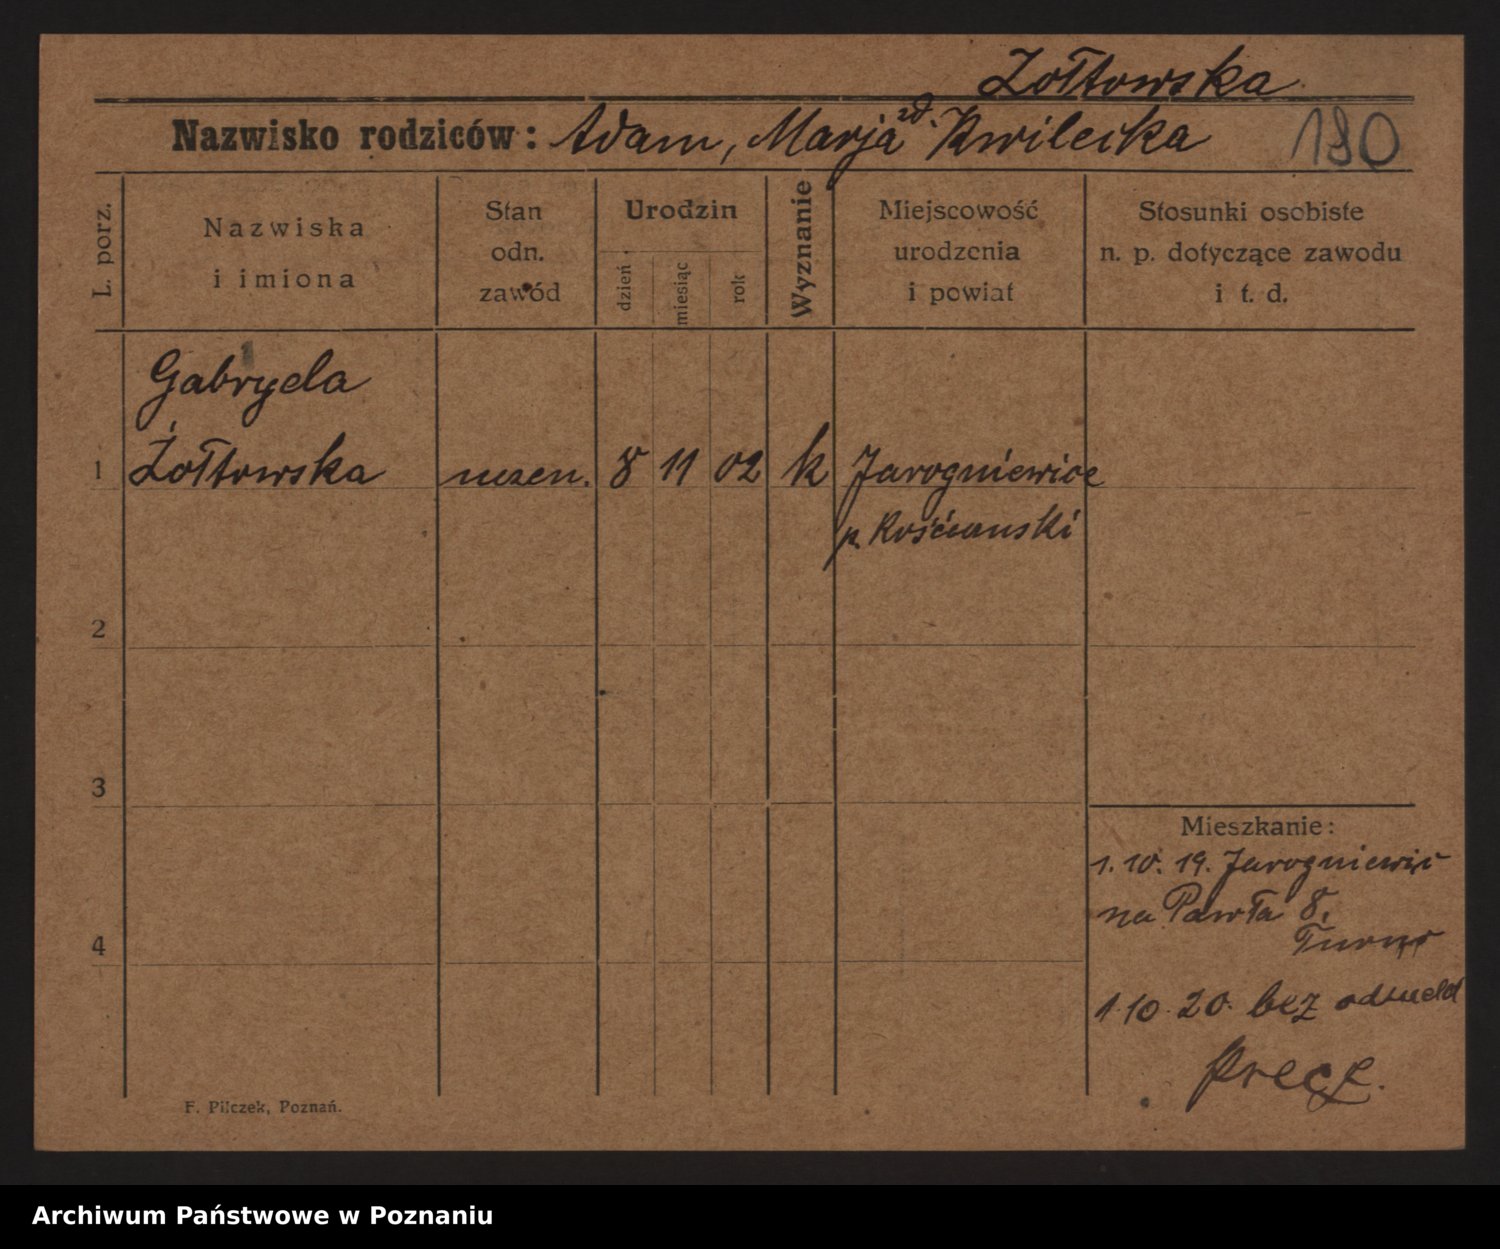 Żołtowska
Nazwisko rodziców: Adam, Marja zd. Kwilecka 190
L. porz.
Nazwiska
i imiona
Stan
odn.
zawód
Urodzin
dzień
miesiąc
rok
Wyznanie
Miejscowość
urodzenia
i powiat
Stosunki osobiste
n. p. dotyczące zawodu
i t. d.
Gabryela
1 Żołtowska 8 11 02 k Jarogniewice
p. Kościański
2
3
4
Mieszkanie:
1. 10. 19. Jarogniewic
na Pawła 8.
1.10.20. bez
Precz.
F. Pilczek, Poznań.
Archiwum Państwowe w Poznaniu